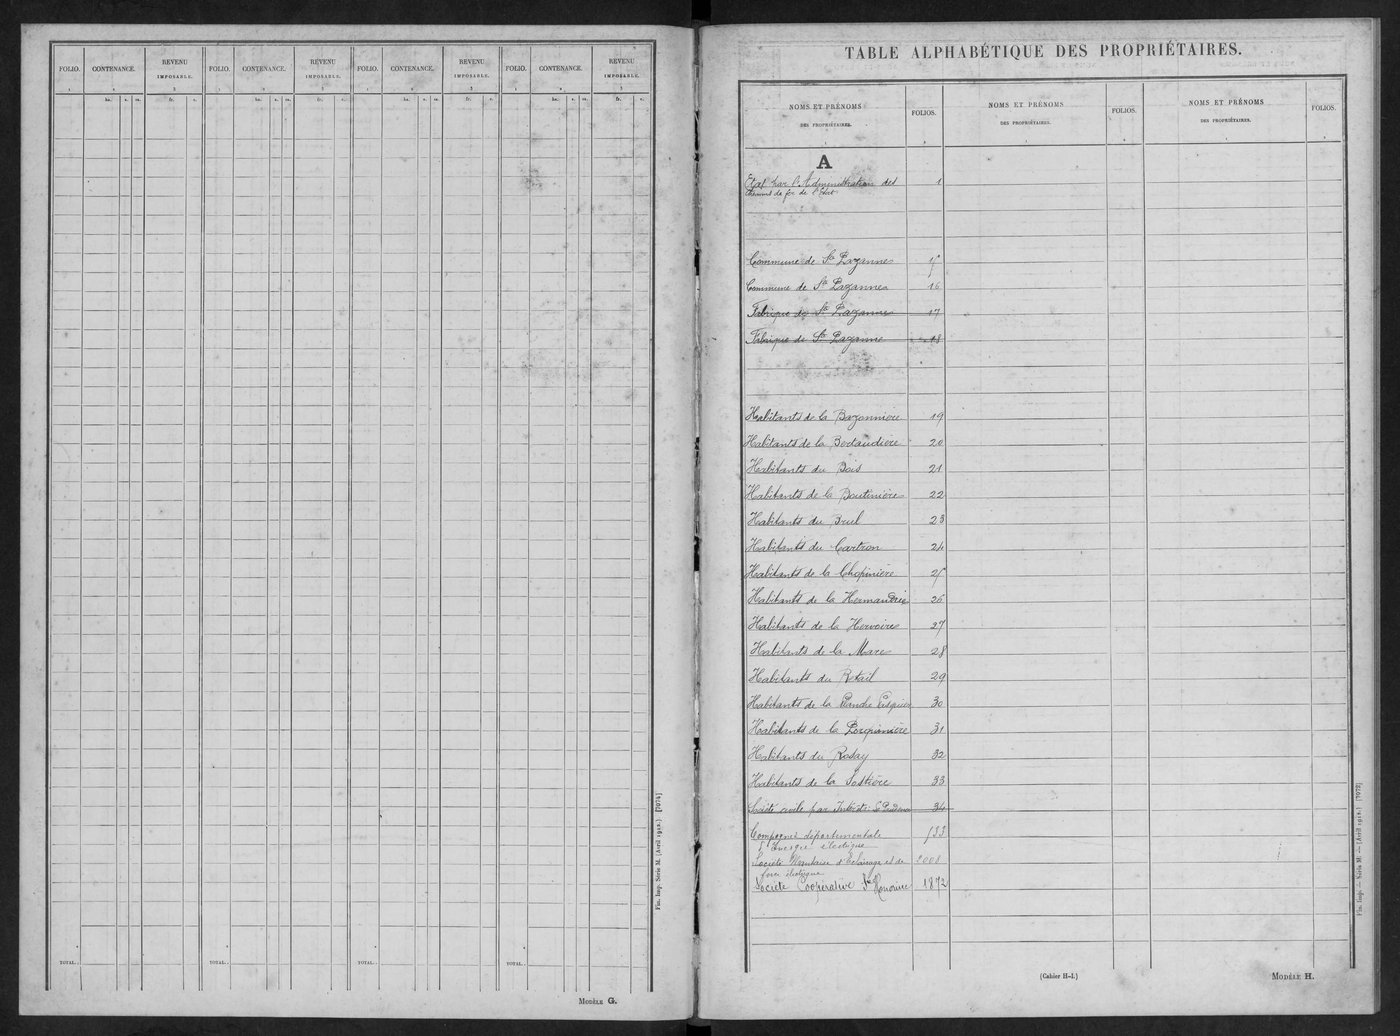 FOLIO. CONTENANCE. REVENU IMPOSABLE. FOLIO. CONTENANCE. REVENU IMPOSABLE. FOLIO. CONTENANCE. REVENU IMPOSABLE. FOLIO. CONTENANCE. REVENU IMPOSABLE.
ha. a. ca. fr. c. ha. a. ca. fr. c. ha. a. ca. fr. c. ha. a. ca. fr. c.
TOTAL. . TOTAL. . TOTAL. . TOTAL. .
Fin. Imp. Série M. (Avril 1912.) [7074]
MODÈLE G.
TABLE ALPHABÉTIQUE DES PROPRIÉTAIRES.
NOMS ET PRÉNOMS DES PROPRIÉTAIRES. FOLIOS. NOMS ET PRÉNOMS DES PROPRIÉTAIRES. FOLIOS. NOMS ET PRÉNOMS DES PROPRIÉTAIRES. FOLIOS.
A
Etat par l'Administration des 1
chemins de fer de l'Etat
Commune de Ste Pazanne 15
Commune de Ste Pazanne 16
Fabrique de Ste Pazanne 17
Fabrique de Ste Pazanne 18
Habitants de la Bazonnière 19
Habitants de la Bodaudière 20
Habitants du Bois 21
Habitants de la Boutinière 22
Habitants du Bruil 23
Habitants du Cartron 24
Habitants de la Chopinière 25
Habitants de la Hermandrie 26
Habitants de la Hervoire 27
Habitants de la Mare 28
Habitants du Retail 29
Habitants de la Planche 30
Habitants de la 31
Habitants du Roday 32
Habitants de la 33
Société civile par 34
Compagnie départementale 133
d'Energie électrique
Société Nantaise d'Eclairage et de 2008
force électrique
Société Coopérative Ste Honorine 1872
(Cahier H-I.)
MODÈLE H.
Fin. Imp. — Série M. — (Avril 1912.) [7072]